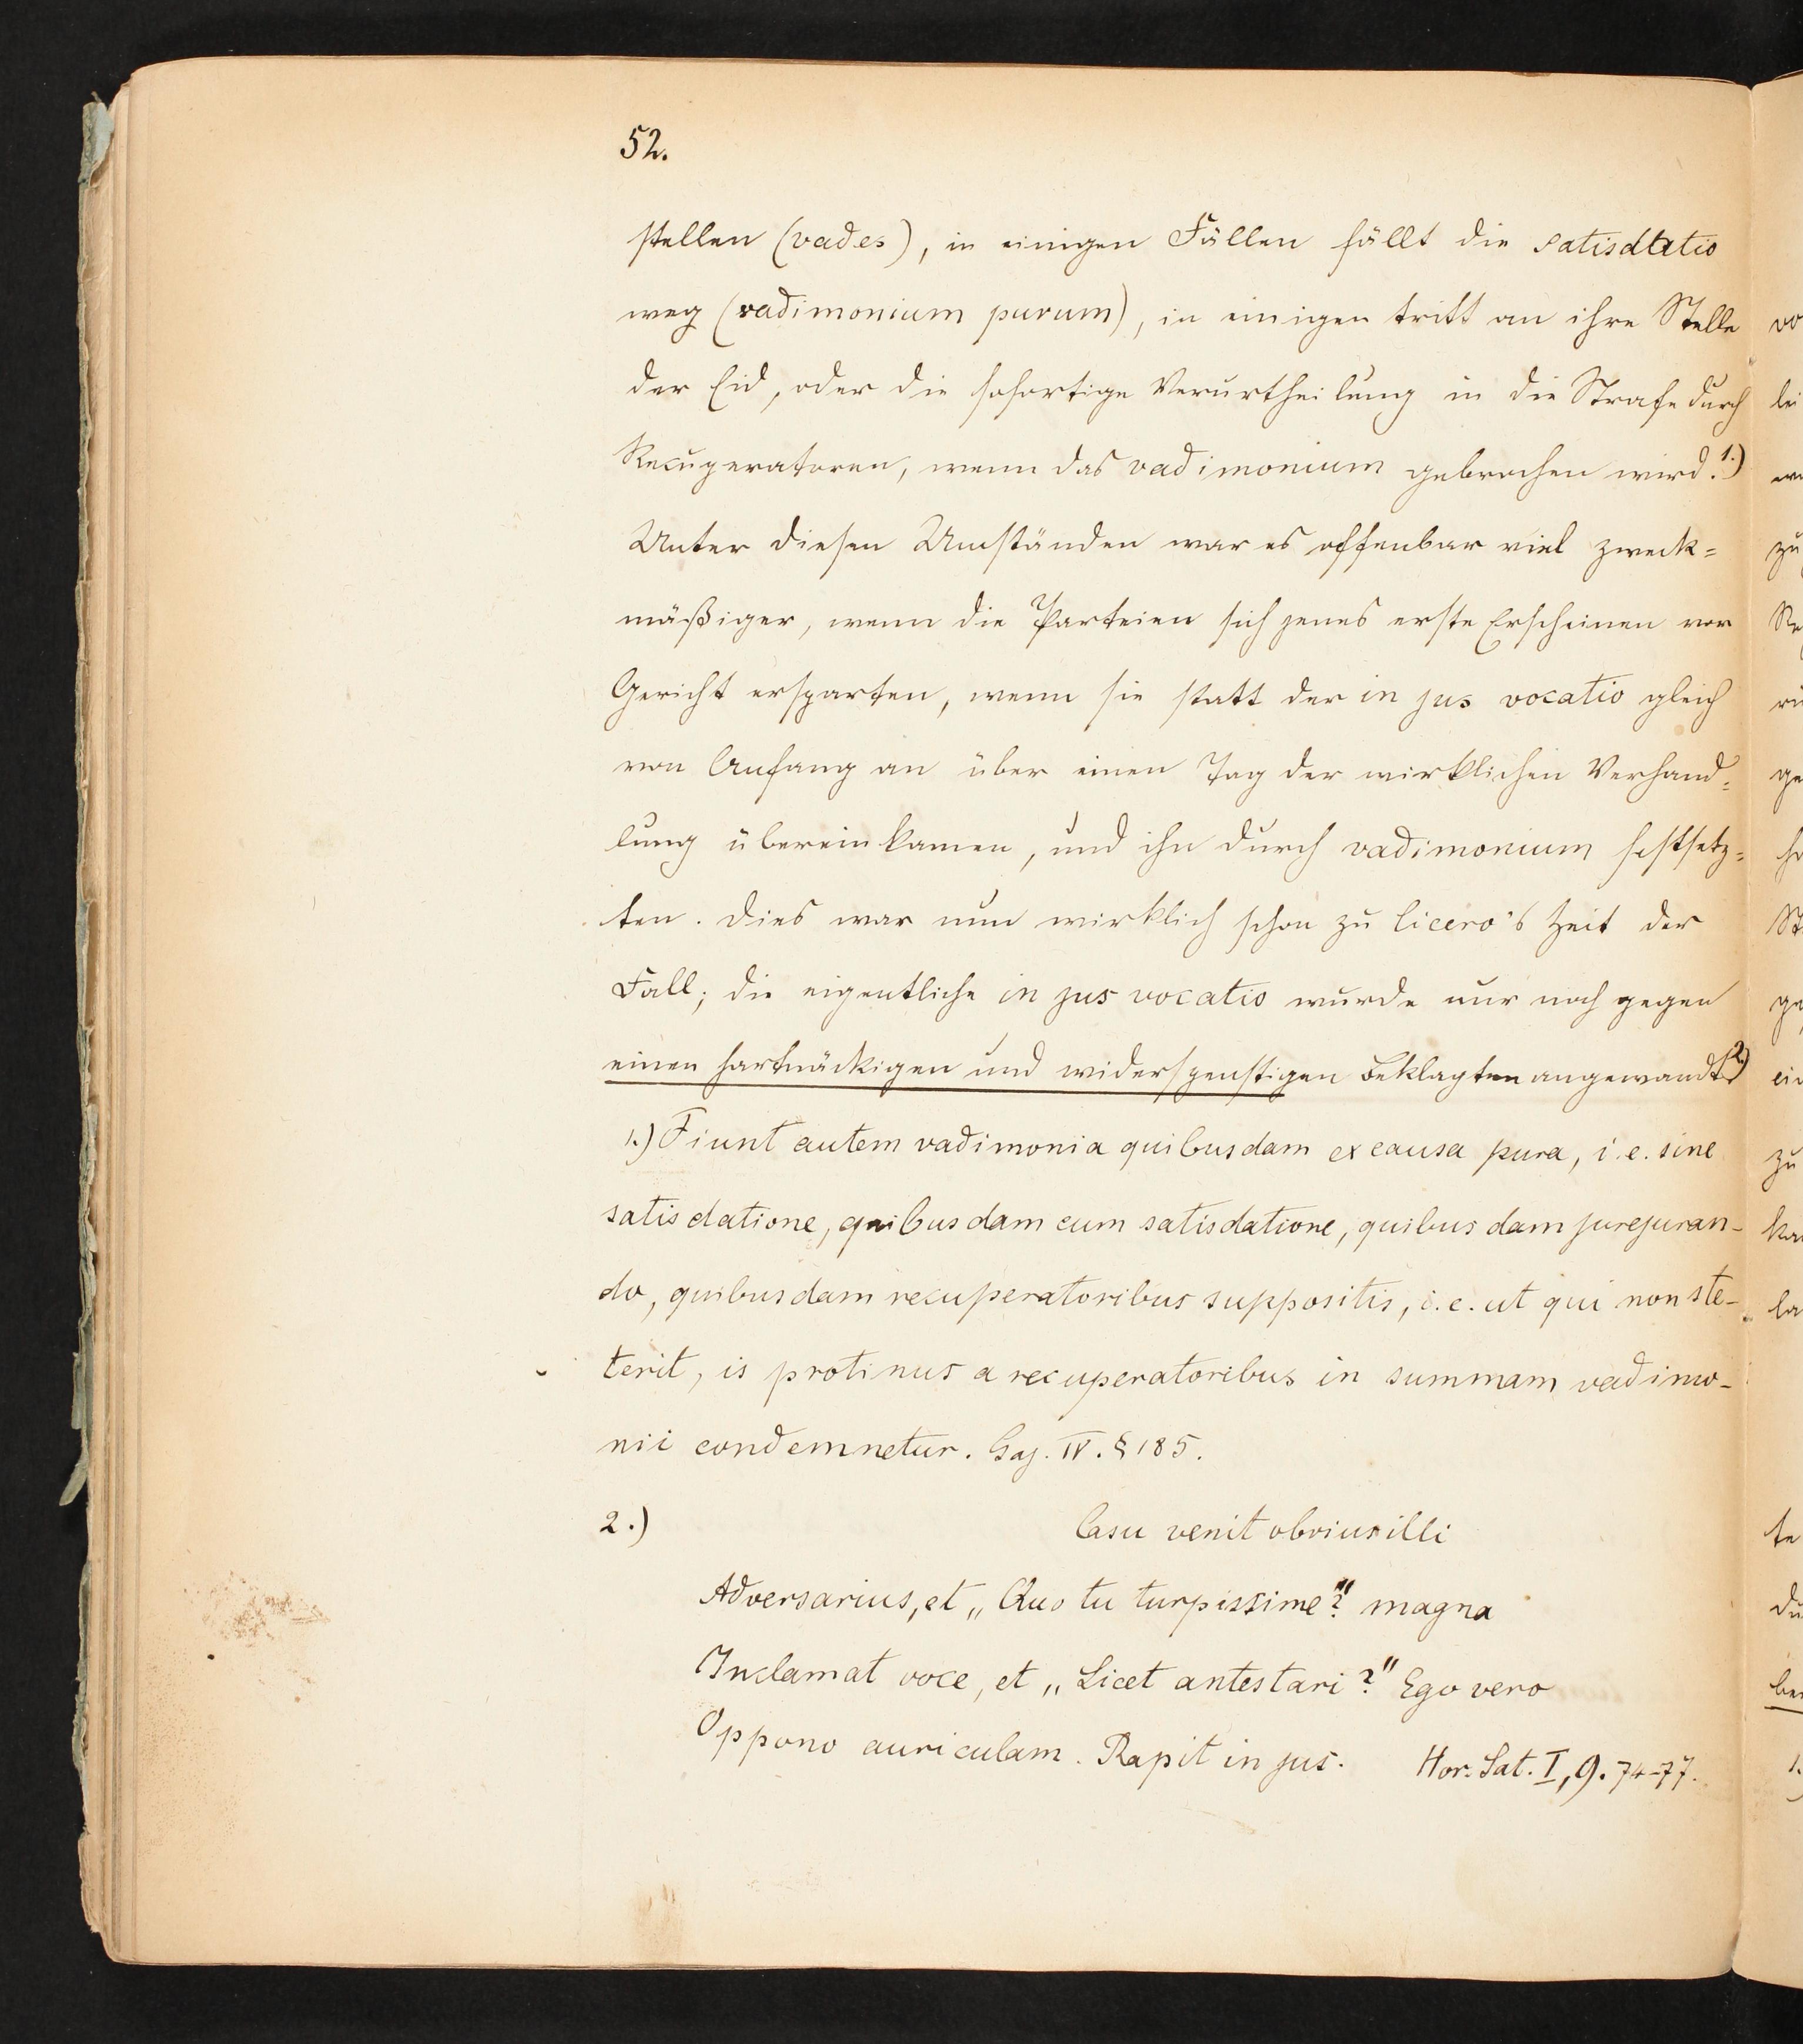 52.
stellen (vades), in einigen Fällen fällt die satisdatio
weg (vadimonium purum), in einigen tritt an ihre Stelle
der Eid, oder die sofortige Verurtheilung in die Strafe durch
Recuperatoren, wenn das vadimonium gebrochen wird.1.)
Unter diesen Umständen war es offenbar viel zweck=
mäßiger, wenn die Parteien sich jenes erste Erscheinen vor
Gericht ersparten, wenn sie statt der in jus vocatio gleich
von Anfang an über einen Tag der wirklichen Verhand=
lung überein kamen, und ihn durch vadimonium festsetz=
ten. Dies war nun wirklich schon zu Cicero's Zeit der
Fall; die eigentliche in jus vocatio wurde nur noch gegen
einen hartnäckigen und widerspenstigen Beklagten angewandt.2)
1.) Fiunt autem vadimonia quibusdam ex causa pura, i.e. sine
satisdatione, quibusdam cum satisdatione, quibusdam jurejuran-
do, quibusdam recuperatoribus suppositis, i.e. ut qui non ste-
terit, is protinus a recuperatoribus in summam vadimo-
nii condemnetur. Gaj. IV. § 185.
2.) Casu venit obvius illi
Adversarius, et „Quo tu turpissime?" magna
Inclamat voce, et „Licet antestari?" Ego vero
Oppono auriculam. Rapit in jus. Hor. Sat. I, 9. 74-77.